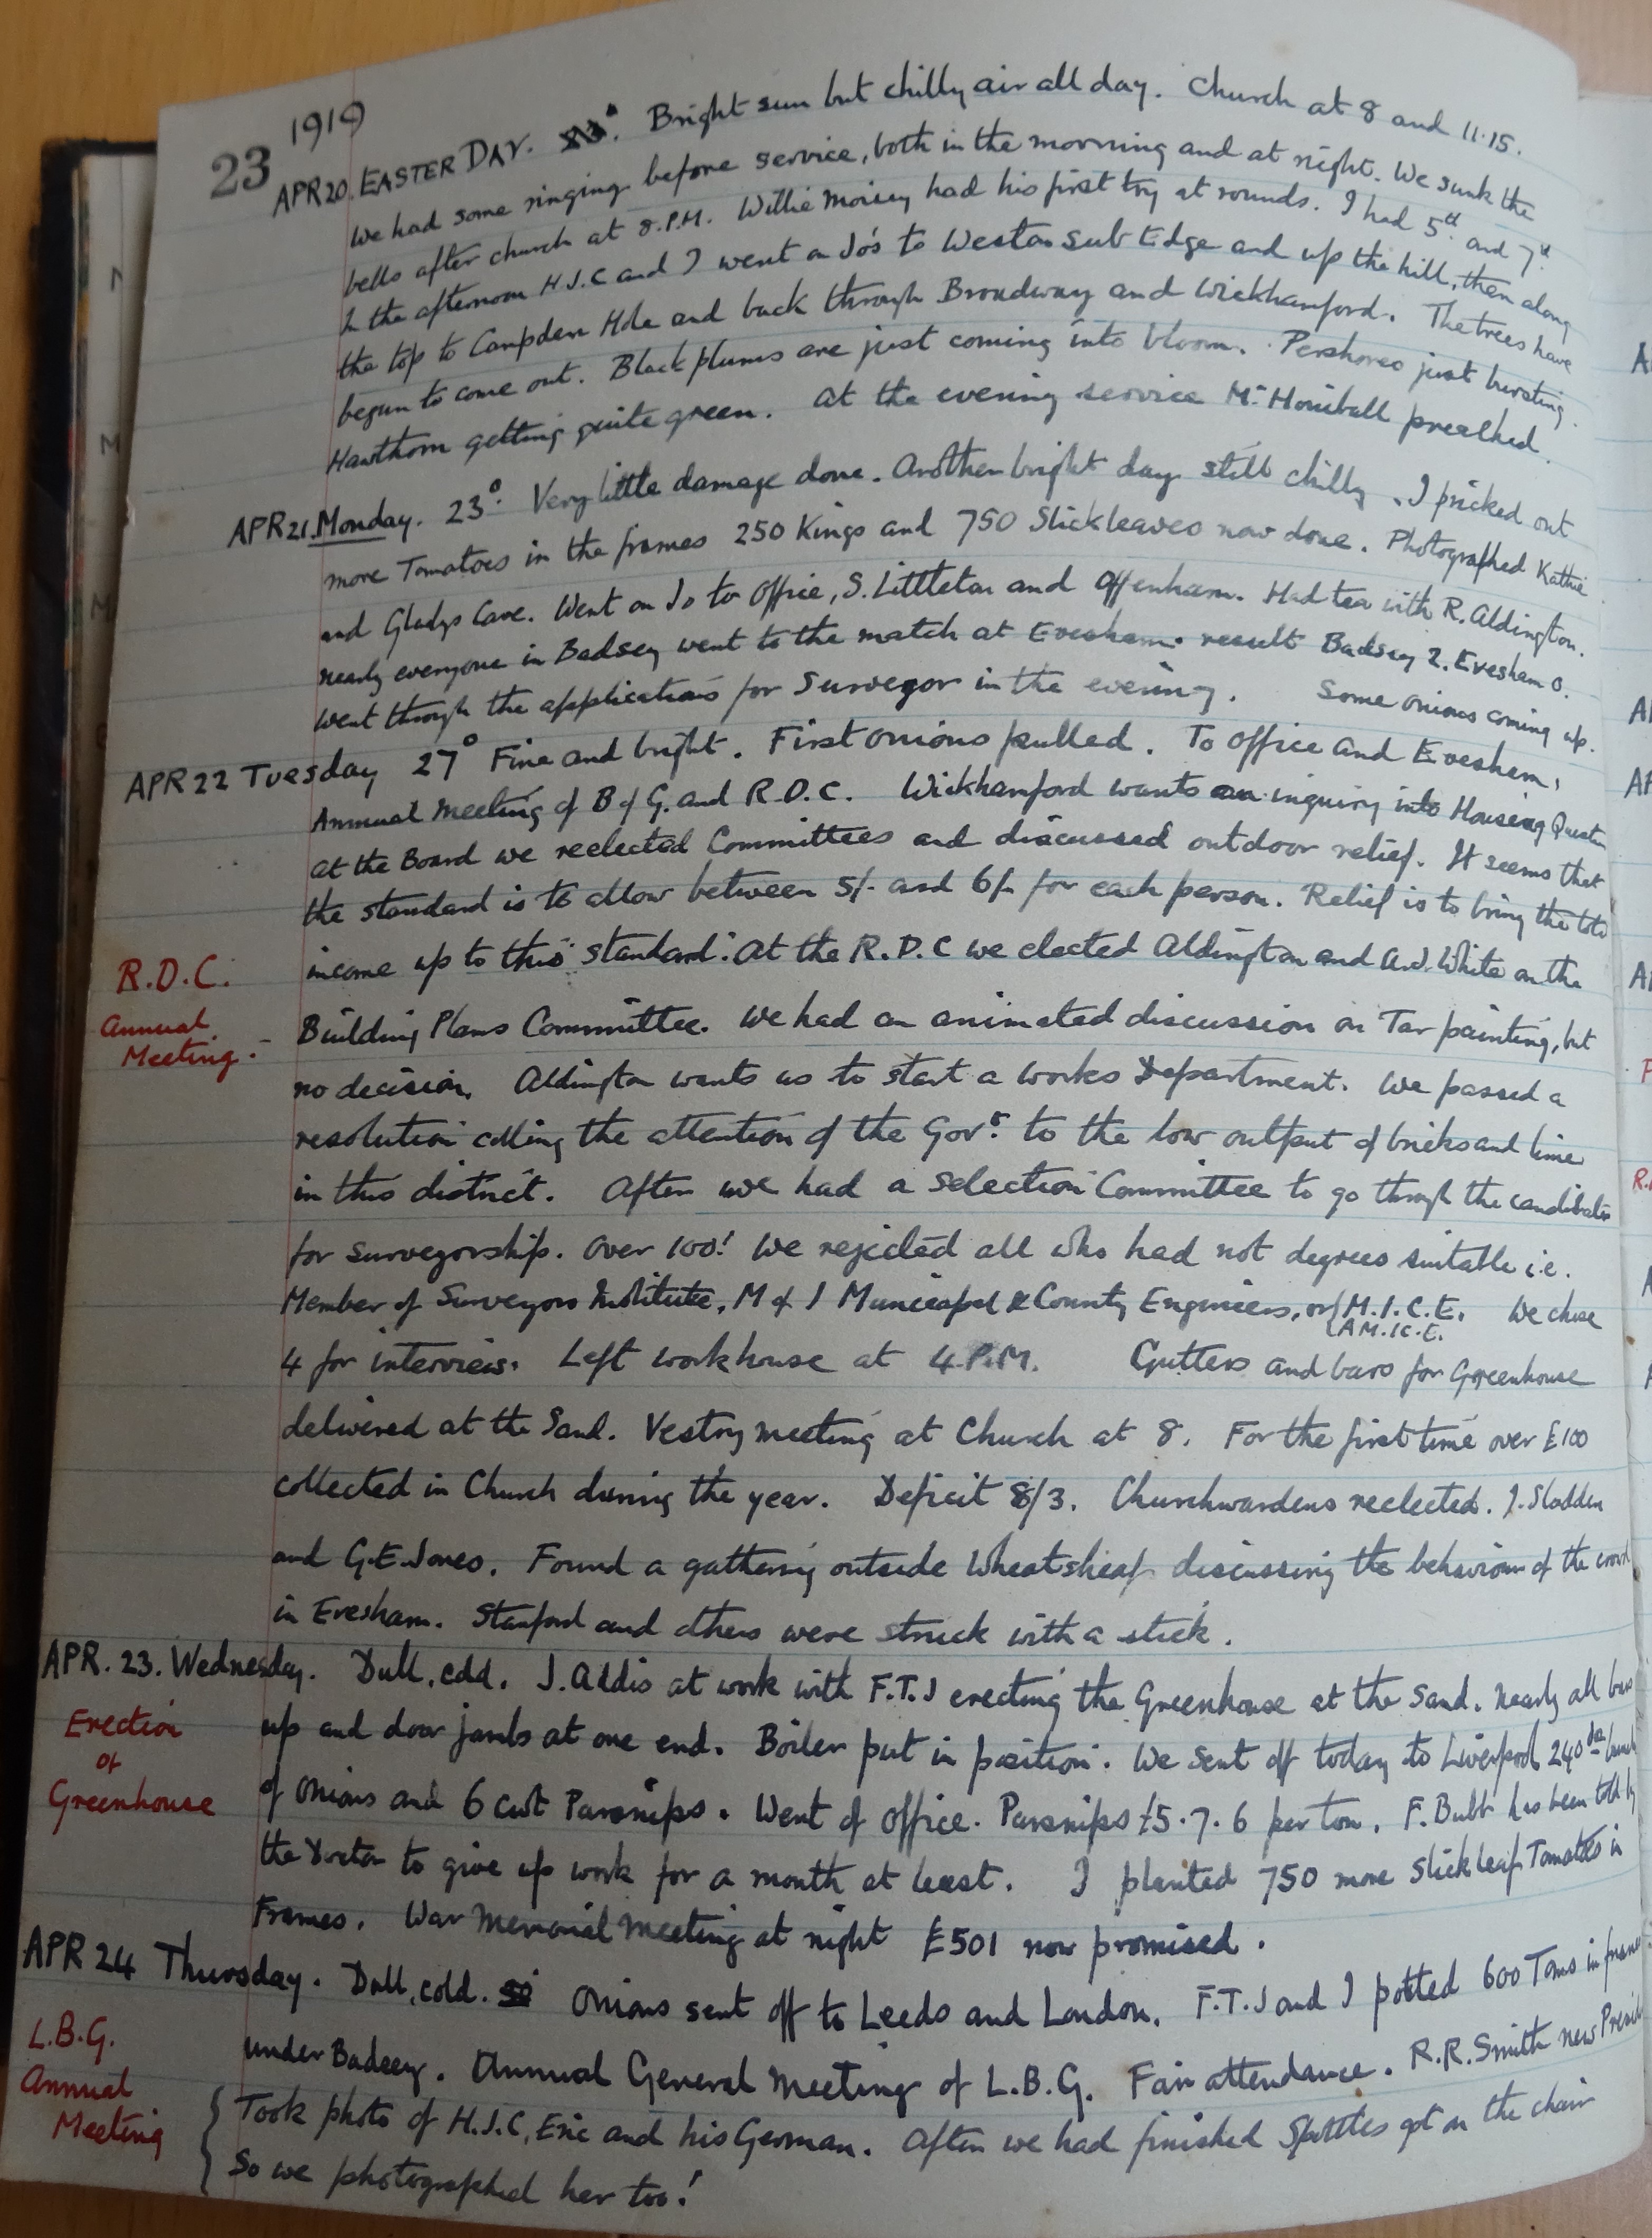 23 1919
APR 20. EASTER DAY. Bright sun but chilly air all day. Church at 8 and 11.15.
We had some ringing before service, both in the morning and at night. We sunk the
bells after church at 8.P.M. Willie Moisey had his first try at rounds. I had 5th and 7th.
In the afternoon H.J.C and I went on Jo's to Weston sub Edge and up the hill, then along
the top to Campden Hole and back through Broadway and Wickhamford. The trees have
begun to come out. Black plums are just coming into bloom. Pershores just bursting.
Hawthorn getting quite green. At the evening service Mr Horniball preached.
APR 21. Monday. 23°. Very little damage done. Another bright day still chilly. I pricked out
more Tomatoes in the frames 250 Kings and 750 Slickleaves now done. Photographed Kathie
and Gladys Cave. Went on Jo to Office, S. Littleton and Offenham. Had tea with R. Aldington.
nearly everyone in Badsey went to the match at Evesham. result Badsey 2. Evesham 0.
Went through the applications for Surveyor in the evening. Some onions coming up.
APR 22 Tuesday 27° Fine and bright. First onions pulled. To Office and Evesham,
Annual Meeting of B of G. and R.D.C. Wickhamford wants an inquiry into Housing Questn
At the Board we reelected Committees and discussed outdoor relief. It seems that
the standard is to allow between 5/- and 6/- for each person. Relief is to bring the
income up to this standard. At the R.D.C we elected Aldington and A.J. White on the
R.D.C.
Annual
Meeting.
Building Plans Committee. We had an animated discussion on Tar painting, but
no decision. Aldington wants us to start a Works Department. We passed a
resolution calling the attention of the Govt. to the low output of bricks and lime
in this district. After we had a Selection Committee to go through the candidates
for surveyorship. Over 100! We rejected all who had not degrees suitable i.e.
Member of Surveyors Institute, M of I Municipal & County Engineers, or M.I.C.E. We chose
A M.IC.E.
4 for interview. Left workhouse at 4.P.M. Gutters and bars for Greenhouse
delivered at the Sand. Vestry meeting at Church at 8. For the first time over £100
collected in Church during the year. Deficit 8/3. Churchwardens reelected. J. Sladden
and G.E. Jones. Found a gathering outside Wheatsheaf discussing the behaviour of the crowd
in Evesham. Stanford and others were struck with a stick.
APR. 23. Wednesday. Dull, cold. J. Addis at work with F.T.J erecting the Greenhouse at the Sand. Nearly all bars
Erection
of
Greenhouse
up and door jambs at one end. Boiler put in position. We sent off today to Liverpool 240 doz
of onions and 6 cwt Parsnips. Went of Office. Parsnips £5.7.6 per ton. F. Bubb has been told by
the Doctor to give up work for a month at least. I planted 750 more Slickleaf Tomatoes in
Frames. War Memorial Meeting at night £501 now promised.
APR 24 Thursday. Dull, cold. Onions sent off to Leeds and London. F.T.J and I potted 600 Toms in frames
under Badsey. Annual General Meeting of L.B.G. Fair attendance. R.R. Smith new
L.B.G.
Annual
Meeting
Took photo of H.J.C, Eric and his German. After we had finished Spottles got on the chair
So we photographed her too!